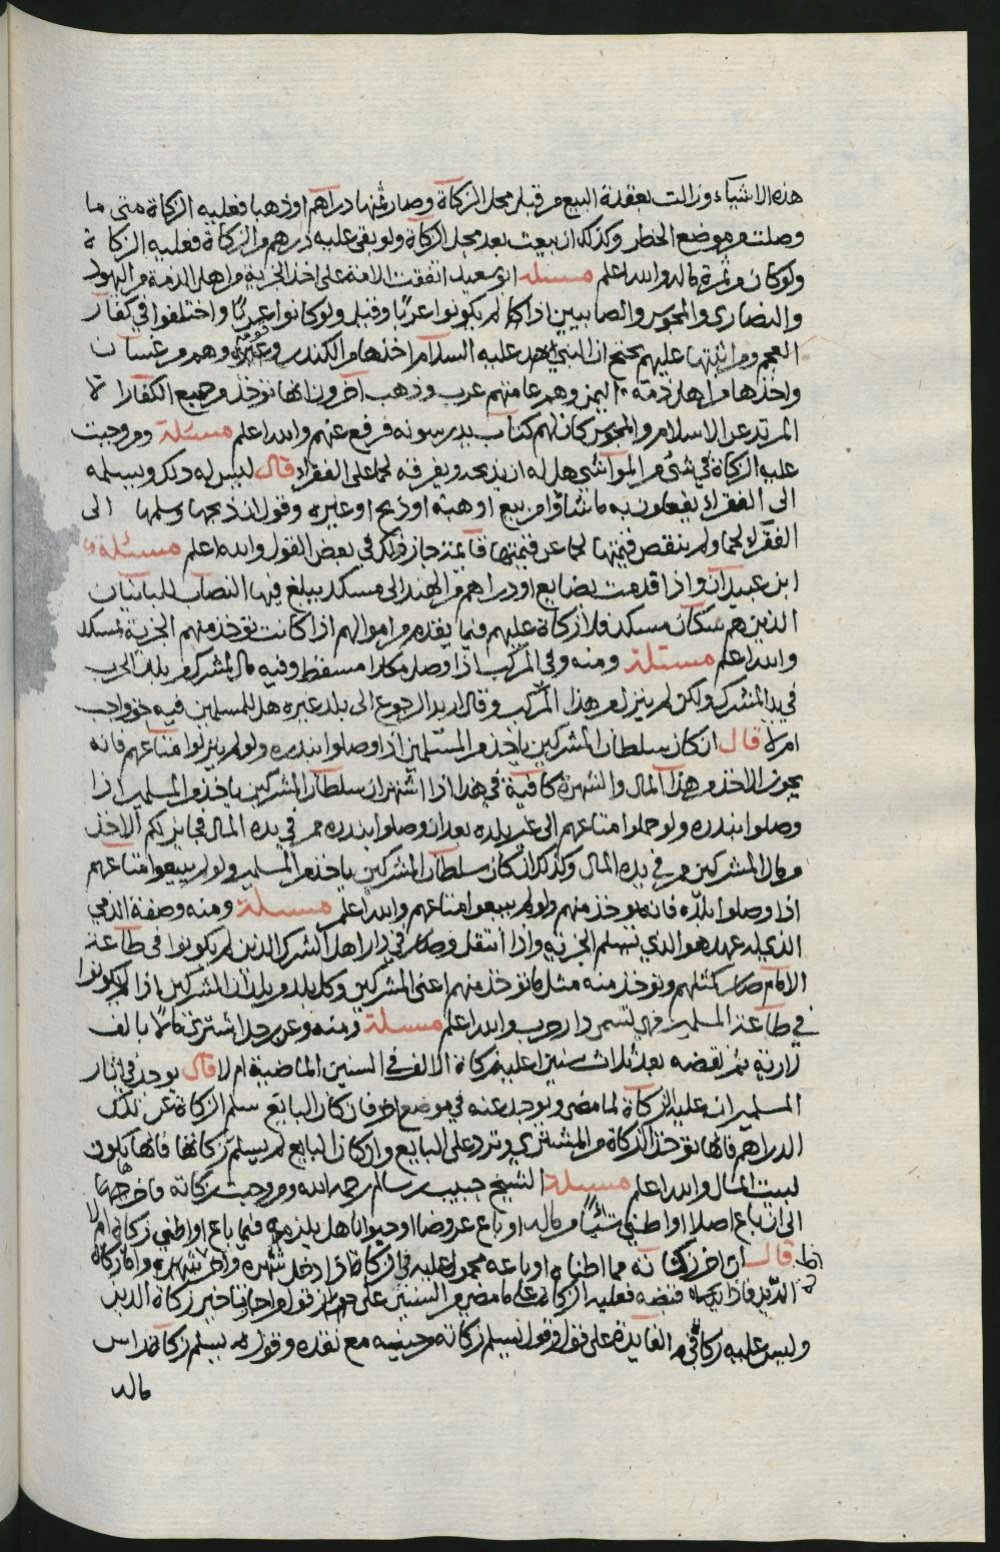 هذه الاشياء وزالت بعقدة البيع من قبل محل الزكاة وصار ثمنها دراهم او ذهبا فعليه الزكاة متى ما
وصلت من موضع الخطر وكذلك ان بيعت بعد محل الزكاة ولو بقى عليه درهم من الزكاة فعليه الزكاة
ولو كان من ثمرة ماله والله اعلم مسئلة ابو سعيد اتفقت الامة على اخذ الجزية من اهل الذمة من اليهود
والنصارى والمجوس والصابيين اذا كا لم يكونوا عربًا وقيل ولو كانوا عربًا واختلفوا في كفار
العجم ومن اثبتها عليهم يحتج ان النبي محمد عليه السلام اخذها من الكندر وغيره وهم من غسان
واخذها من اهل ذمة اليمن وهم عامتهم عرب وذهب آخرون انها تؤخذ من جميع الكفار الا
المرتد عن الاسلام والمجوس كان لهم كتاب يدرسونه فرفع عنهم والله اعلم مسئلة ومن وجبت
عليه الزكاة في شئ من المواشي هل له ان يذبحه ويفرقه لحما على الفقراء قال ليس له ذلك ويسلمه
الى الفقراء يفعلون به ما شاؤا من بيع او هبة او ذبح او غيره وقول ان ذبحها وسلمها الى
الفقراء لحما ولم ينقص قيمتها لحما عن قيمتها قايمة جاز ذلك في بعض القول والله اعلم مسئلة
ابن عبيدان واذا قدمت بضايع او دراهم من الهند الى مسكد يبلغ فيها النصاب للبانيان
الذين هم سكان مسكد فلا زكاة عليهم فيما يقدم من اموالهم اذا كانت تؤخذ منهم الجزية لمسكد
والله اعلم مسئلة ومنه وفي المركب اذا وصل مكلا مسقط وفيه مال لمشرك من بلد الحرب
في يد المشرك ولكن لم ينزل من هذا المركب وقال اريد الرجوع الى بلد غيره هل للمسلمين فيه حق واجب
ام لا قال ان كان سلطان المشركين ياخذ من المسلمين اذا وصلوا بندره ولو لم ينزلوا متاعهم فانه
يجوز الاخذ من هذا المال والشهرة كافية في هذا اذا اشتهر ان سلطان المشركين ياخذ من المسلمين اذا
وصلوا بندره ولو حملوا متاعهم الى غير بلده بعد ان وصلوا بندره من في يده المال فجايز لكم الاخذ
من مال المشركين من في يده المال وكذلك ان كان سلطان المشركين ياخذ من المسلمين ولو لم يبيعوا متاعهم
اذا وصلوا بلده فانه يؤخذ منهم ولو لم يبيعوا متاعهم والله اعلم مسئلة ومنه وصفة الذمي
الذي له عهد هو الذي يسلم الجزية واذا انتقل وصار في دار اهل الشرك الذين لم يكونوا في طاعة
الامام صار كمثلهم ويؤخذ منه مثل ما يؤخذ منهم اعنى المشركين وكل بلد من بلدان المشركين اذا لم يكونوا
في طاعة المسلمين فهى تسمى دار حرب والله اعلم مسئلة ومنه وعن رجل اشترى مالا بالف
لارية ثم نقضه بعد ثلاث سنين اعليه زكاة الالف في السنين الماضية ام لا قال يوجد في اثار
المسلمين ان عليه الزكاة لما مضى ويوجد عنه في موضع اخر فان كان البايع سلم الزكاة عن تلك
الدراهم فانها تؤخذ الزكاة من المشترى وترد على البايع وان كان البايع لم يسلم زكاتها فانها تكون
لبيت المال والله اعلم مسئلة الشيخ حبيب بن سالم رحمه الله ومن وجبت زكاته فاخرجها
الى ان باع اصلا او اطنى شيئًا من ماله او باع عروضا او حيوانا هل يلزمه فيما باع او اطنى زكاة ام لا
قال ان اخر زكاته مما اطناه او باعه محمول عليه في الزكاة اذا دخل شهره واخر شهره واما زكاة
الدين فاذا قبضه فعليه الزكاة على ما مضى من السنين على قول من اجاز تاخير زكاة الدين
وليس عليه زكاة في الفايدة على قول وقول يسلم زكاته من حينه مع نقده وقول يسلم زكاة راس
ماله